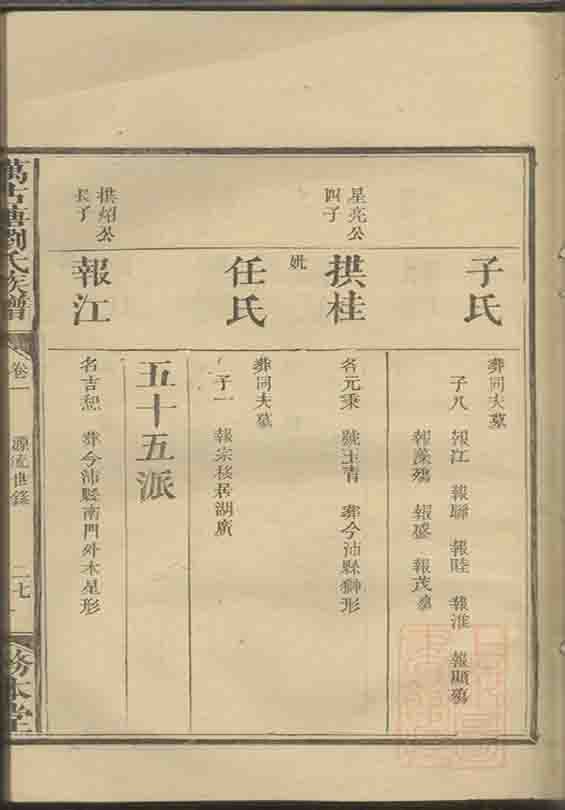 子氏
葬同夫墓
子八 報江 報聯 報睦 報淮 報顯殤
報藻殤 報盛 報茂
星亮公
四子
拱桂
名元秉 號玉青 葬今沛縣獅形
妣
任氏
葬同夫墓
子一 報宗移居湖廣
五十五派
拱紹公
長子
報江
名吉恕 葬今沛縣南門外木星形
萬古塘劉氏族譜 卷一 源流世錄 二七 務本堂